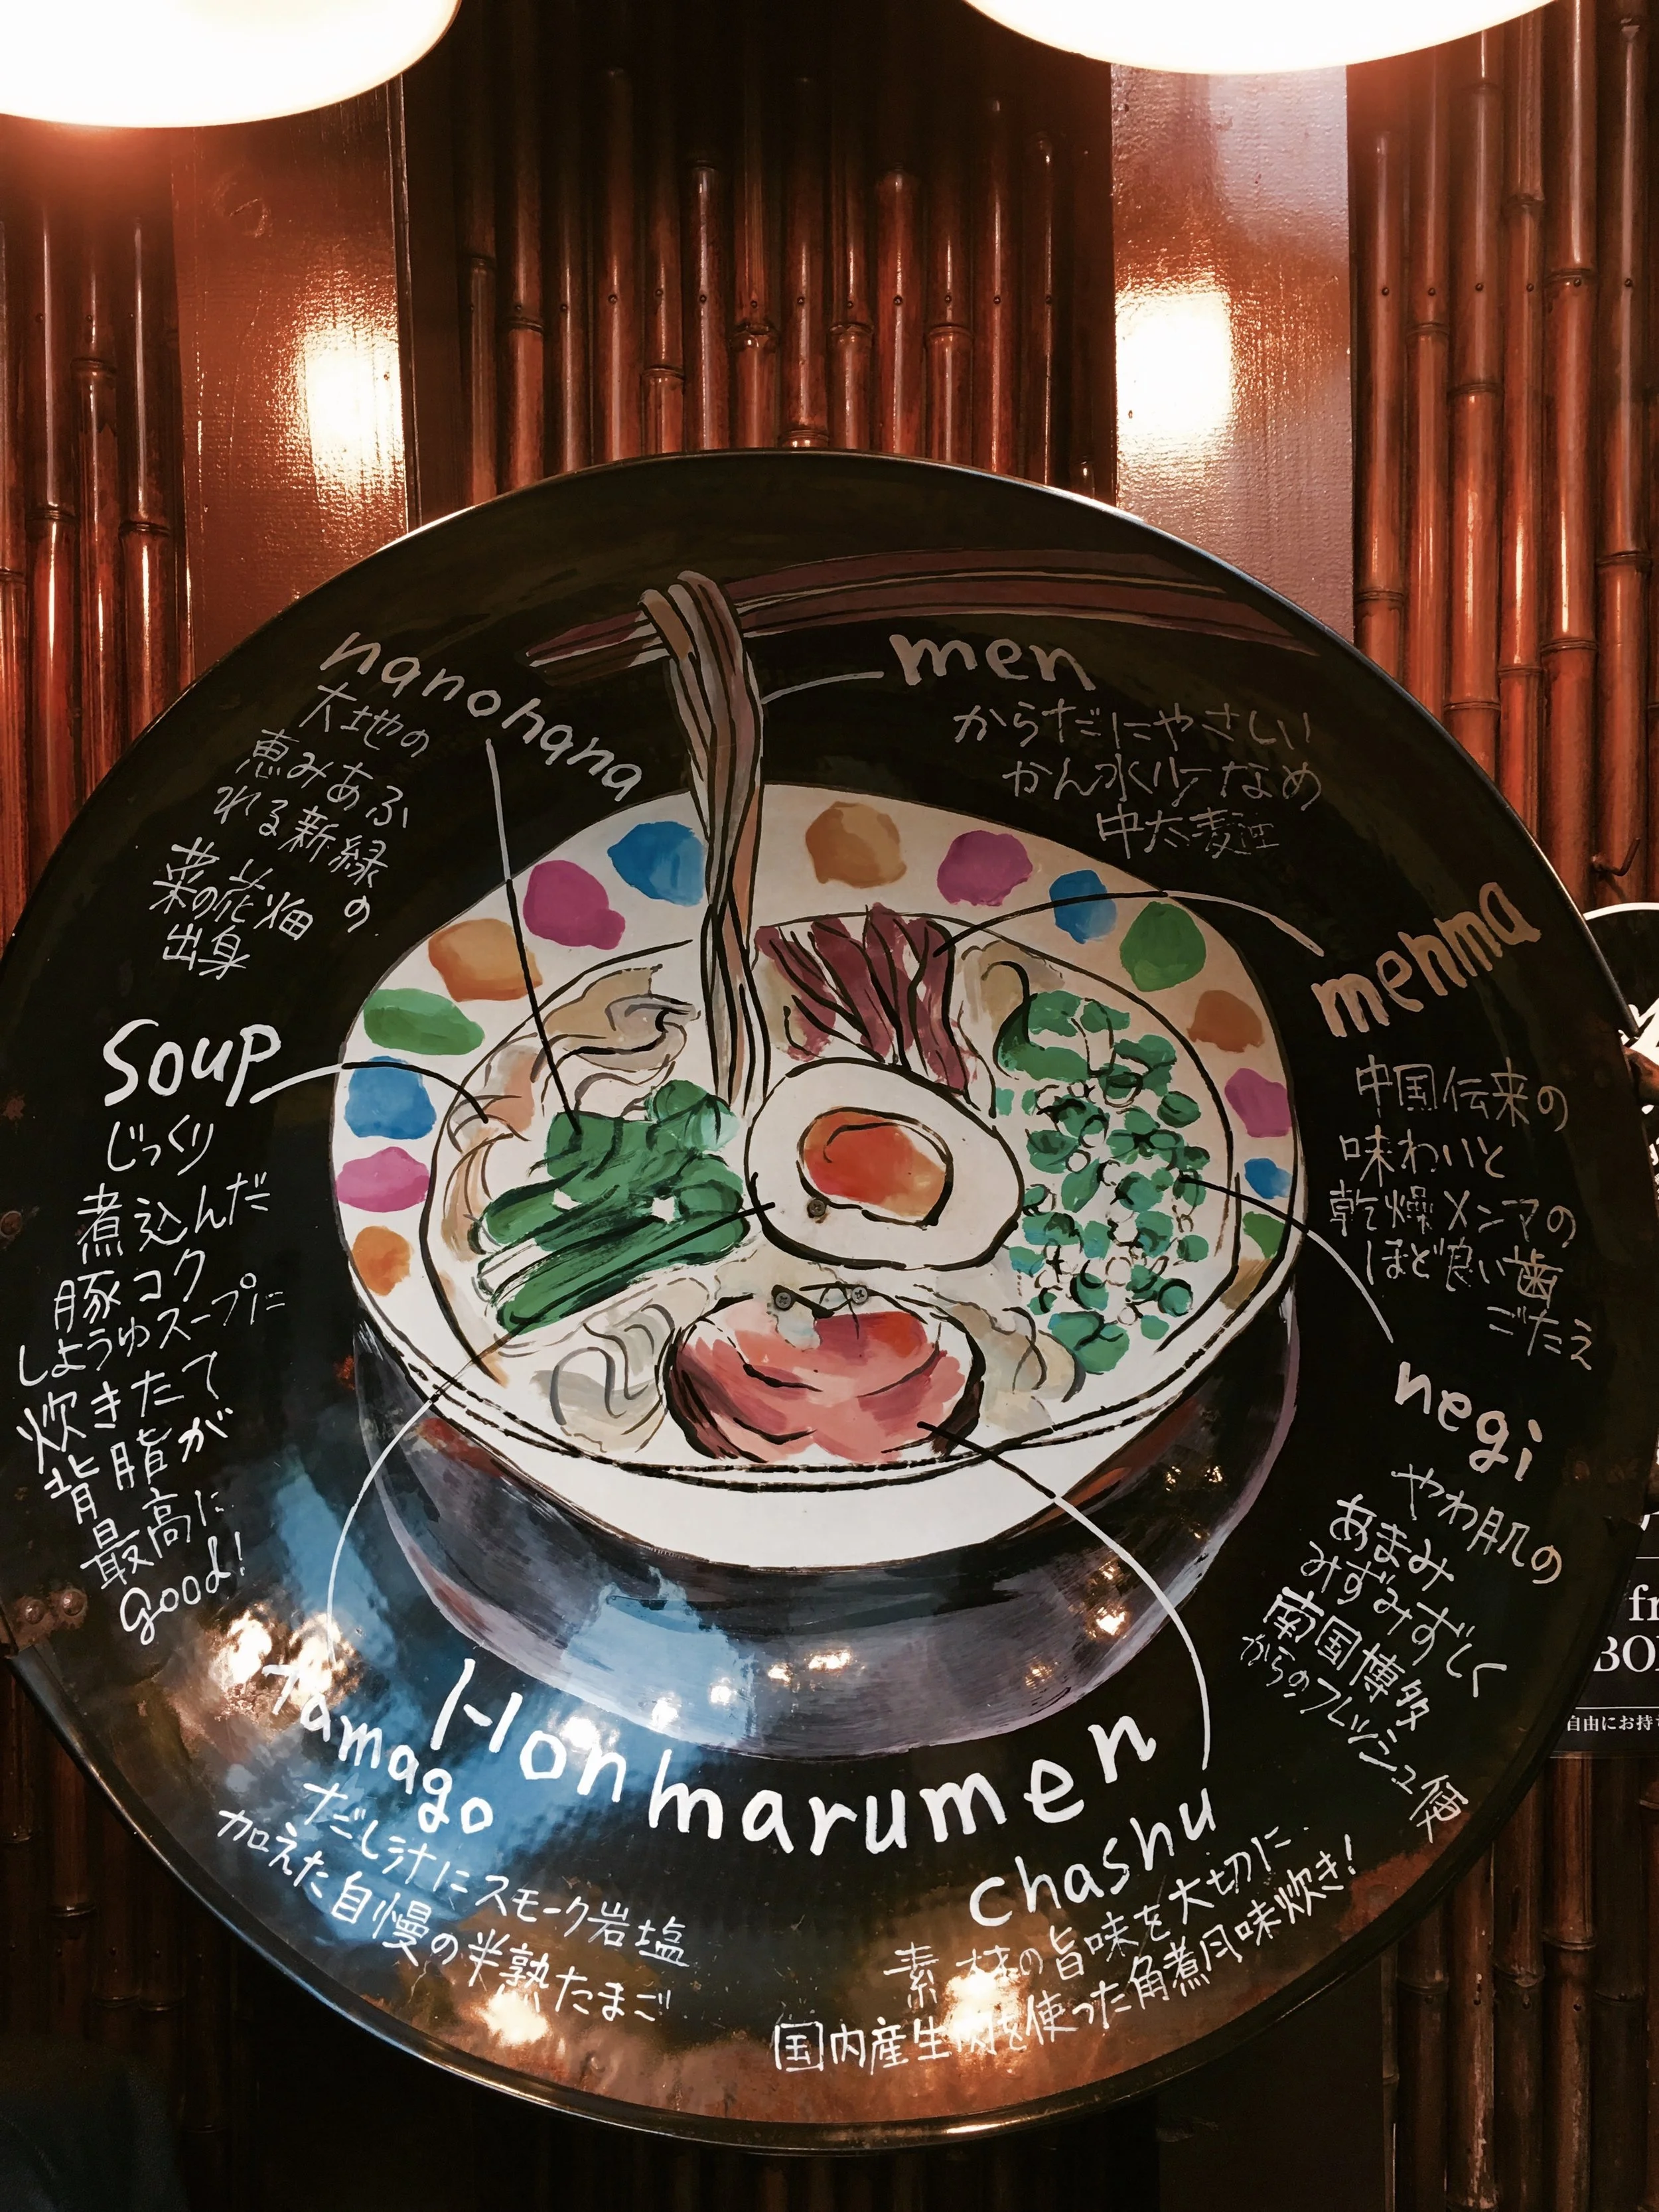 nanohana
大地の
恵みあふ
れる新緑
の
菜の花畑
出身
men
からだにやさしい
かん水少なめ
中太麺
menma
中国伝来の
味わいと
乾燥メンマの
ほど良い歯
ごたえ
Soup
じっくり
煮込んだ
豚コク
しょうゆスープに
炊きたて
背脂が
最高に
good!
negi
やわ肌の
あまみ
みずみずしく
南国博多
からのフレッシュ便
Tamago
だし汁にスモーク岩塩
加えた自慢の半熟たまご
Honmarumen
chashu
素材の旨味を大切に
国内産生肉を使った角煮風味炊き!
自由にお持ち